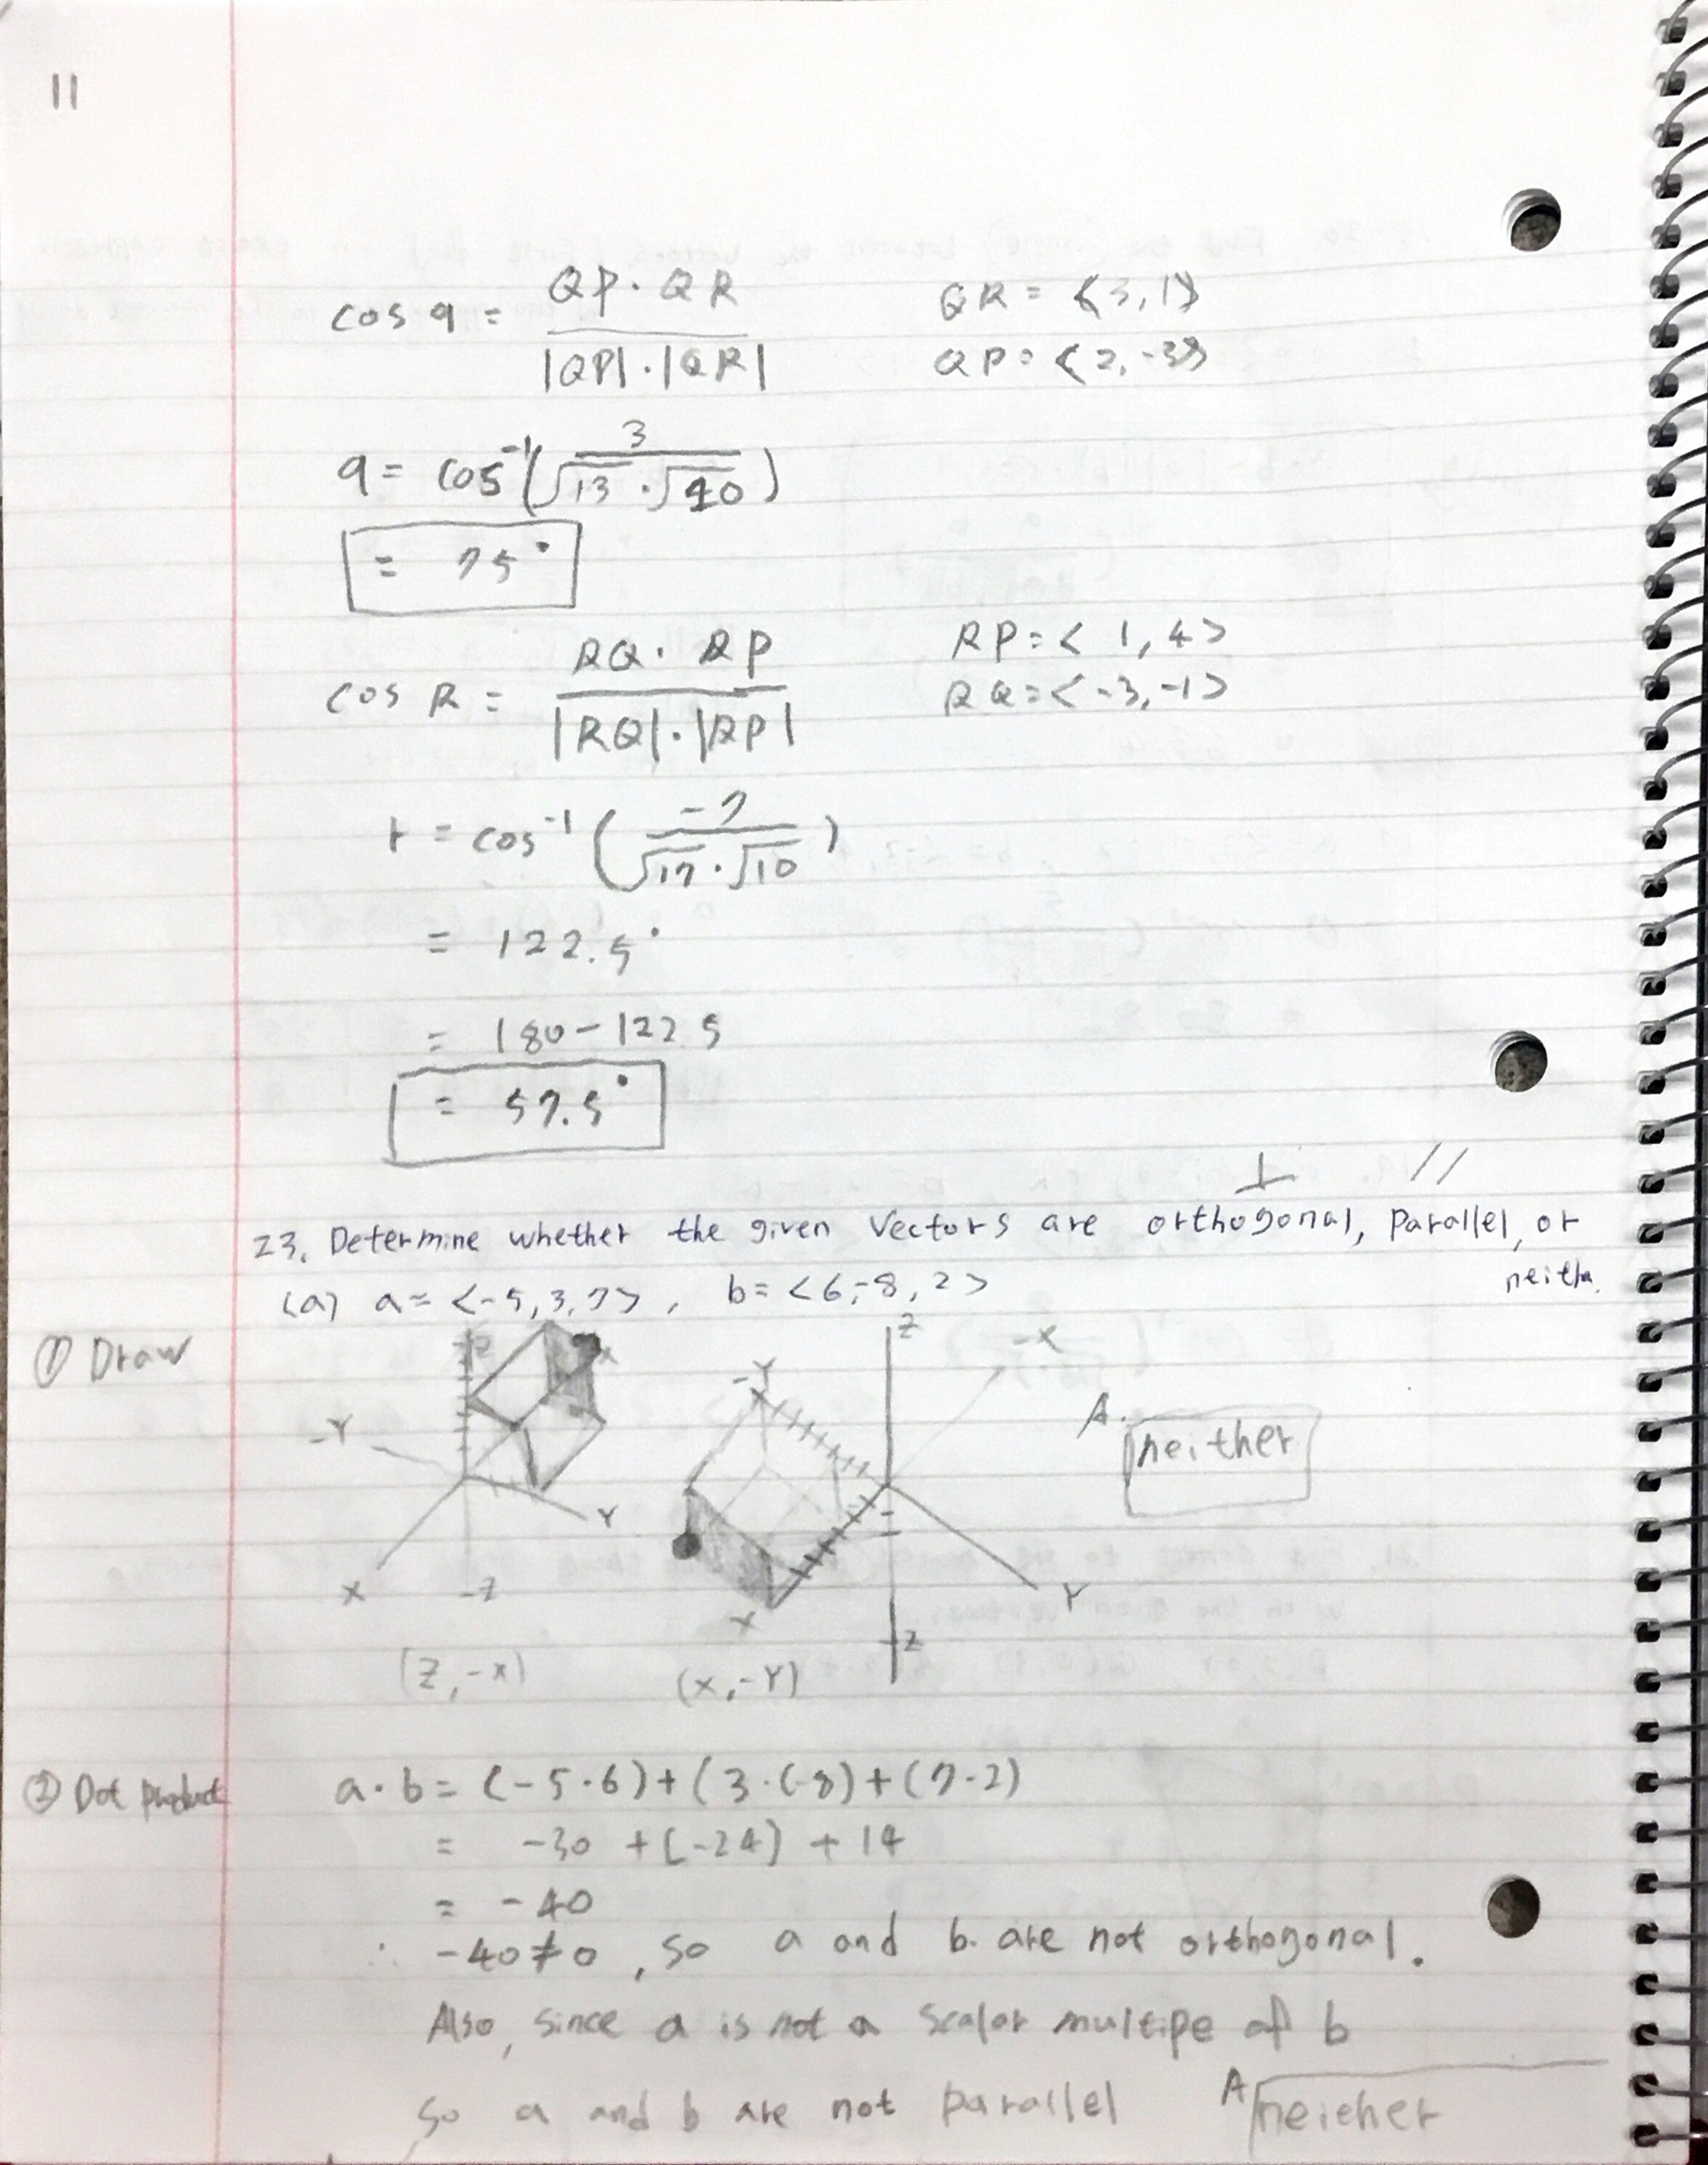 11
cos q = QP · QR / |QP| · |QR|
QR = <3, 1>
QP = <2, -3>
q = cos⁻¹(3 / √13 · √40)
= 75°
cos R = RQ · RP / |RQ| · |RP|
RP = < 1, 4 >
RQ = < -3, -1 >
r = cos⁻¹ (-7 / √17 · √10)
= 122.5°
= 180 - 122.5
= 57.5°
⊥ //
23. Determine whether the given vectors are orthogonal, parallel, or
(a) a = <-5, 3, 7>, b = <6, -8, 2>
① Draw
Z
-X
-Y
Y
X
-Z
Z
-X
-Y
Y
X
-Z
A. neither
(Z, -X)
(X, -Y)
② Dot Product
a · b = (-5 · 6) + (3 · (-8) + (7 · 2)
= -30 + (-24) + 14
= -40
∴ -40 ≠ 0, so a and b are not orthogonal.
Also, since a is not a scalar multipe of b
so a and b are not parallel
A neieher